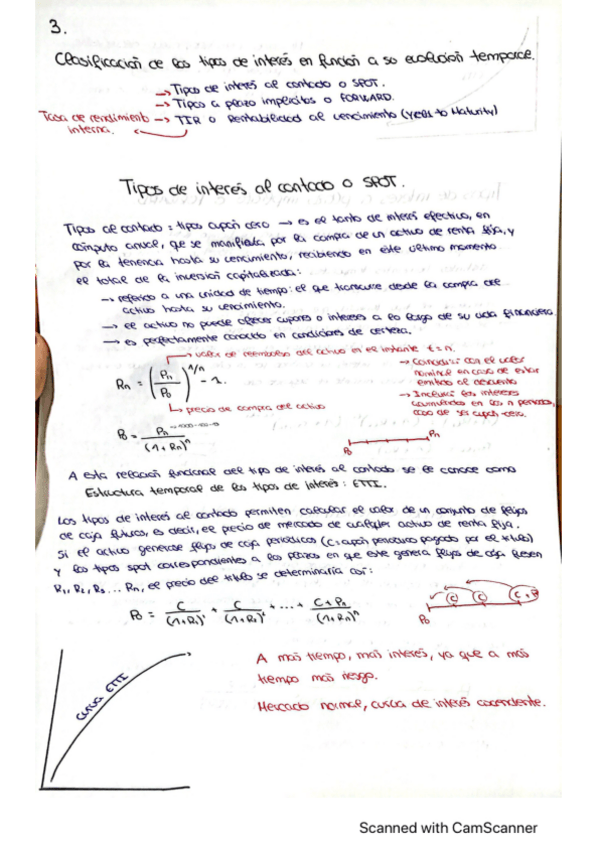 3.
Clasificación de los tipos de interés en función a su evolución temporal.
→ Tipos de interés al contado o SPOT.
→ Tipos a plazo implícitos o FORWARD.
Tasa de rendimiento → TIR o Rentabilidad al vencimiento (Yield to Maturity)
interna.
Tipos de interés al contado o SPOT.
Tipos al contado: tipos cupón cero → es el tanto de interés efectivo, en
cómputo anual, que se manifiesta por la compra de un activo de renta fija, y
por la tenencia hasta su vencimiento, recibiendo en este último momento
el total de la inversión capitalizada:
→ referido a una unidad de tiempo: el que transcurre desde la compra del
activo hasta su vencimiento.
→ el activo no puede ofrecer cupones o intereses a lo largo de su vida financiera.
→ es perfectamente conocido en condiciones de certeza.
→ valor de reembolso del activo en el instante t = n.
Rn = (Pn / P0)^1/n - 1.
→ precio de compra del activo
→ Coincidirá con el valor
nominal en caso de estar
emitido al descuento
→ Incluirá los intereses
acumulados en los n periodos,
caso de ser cupón cero.
P0 = Pn / (1 + Rn)^n
P0 Pn
A esta relación funcional del tipo de interés al contado se le conoce como
Estructura temporal de los tipos de interés: ETTI.
Los tipos de interés al contado permiten calcular el valor de un conjunto de flujos
de caja futuros, es decir, el precio de mercado de cualquier activo de renta fija.
Si el activo generase flujos de caja periódicos (C = cupón periódico pagado por el título)
y los tipos spot correspondientes a los plazos en que este genera flujos de caja fuesen
R1, R2, R3 ... Rn, el precio del título se determinaría así:
P0 = C / (1+R1)^1 + C / (1+R2)^2 + ... + C + Pn / (1+Rn)^n
C C C + P
P0
Curva ETTI
A más tiempo, más interés, ya que a más
tiempo más riesgo.
Mercado normal, curva de interés ascendente.
Scanned with CamScanner